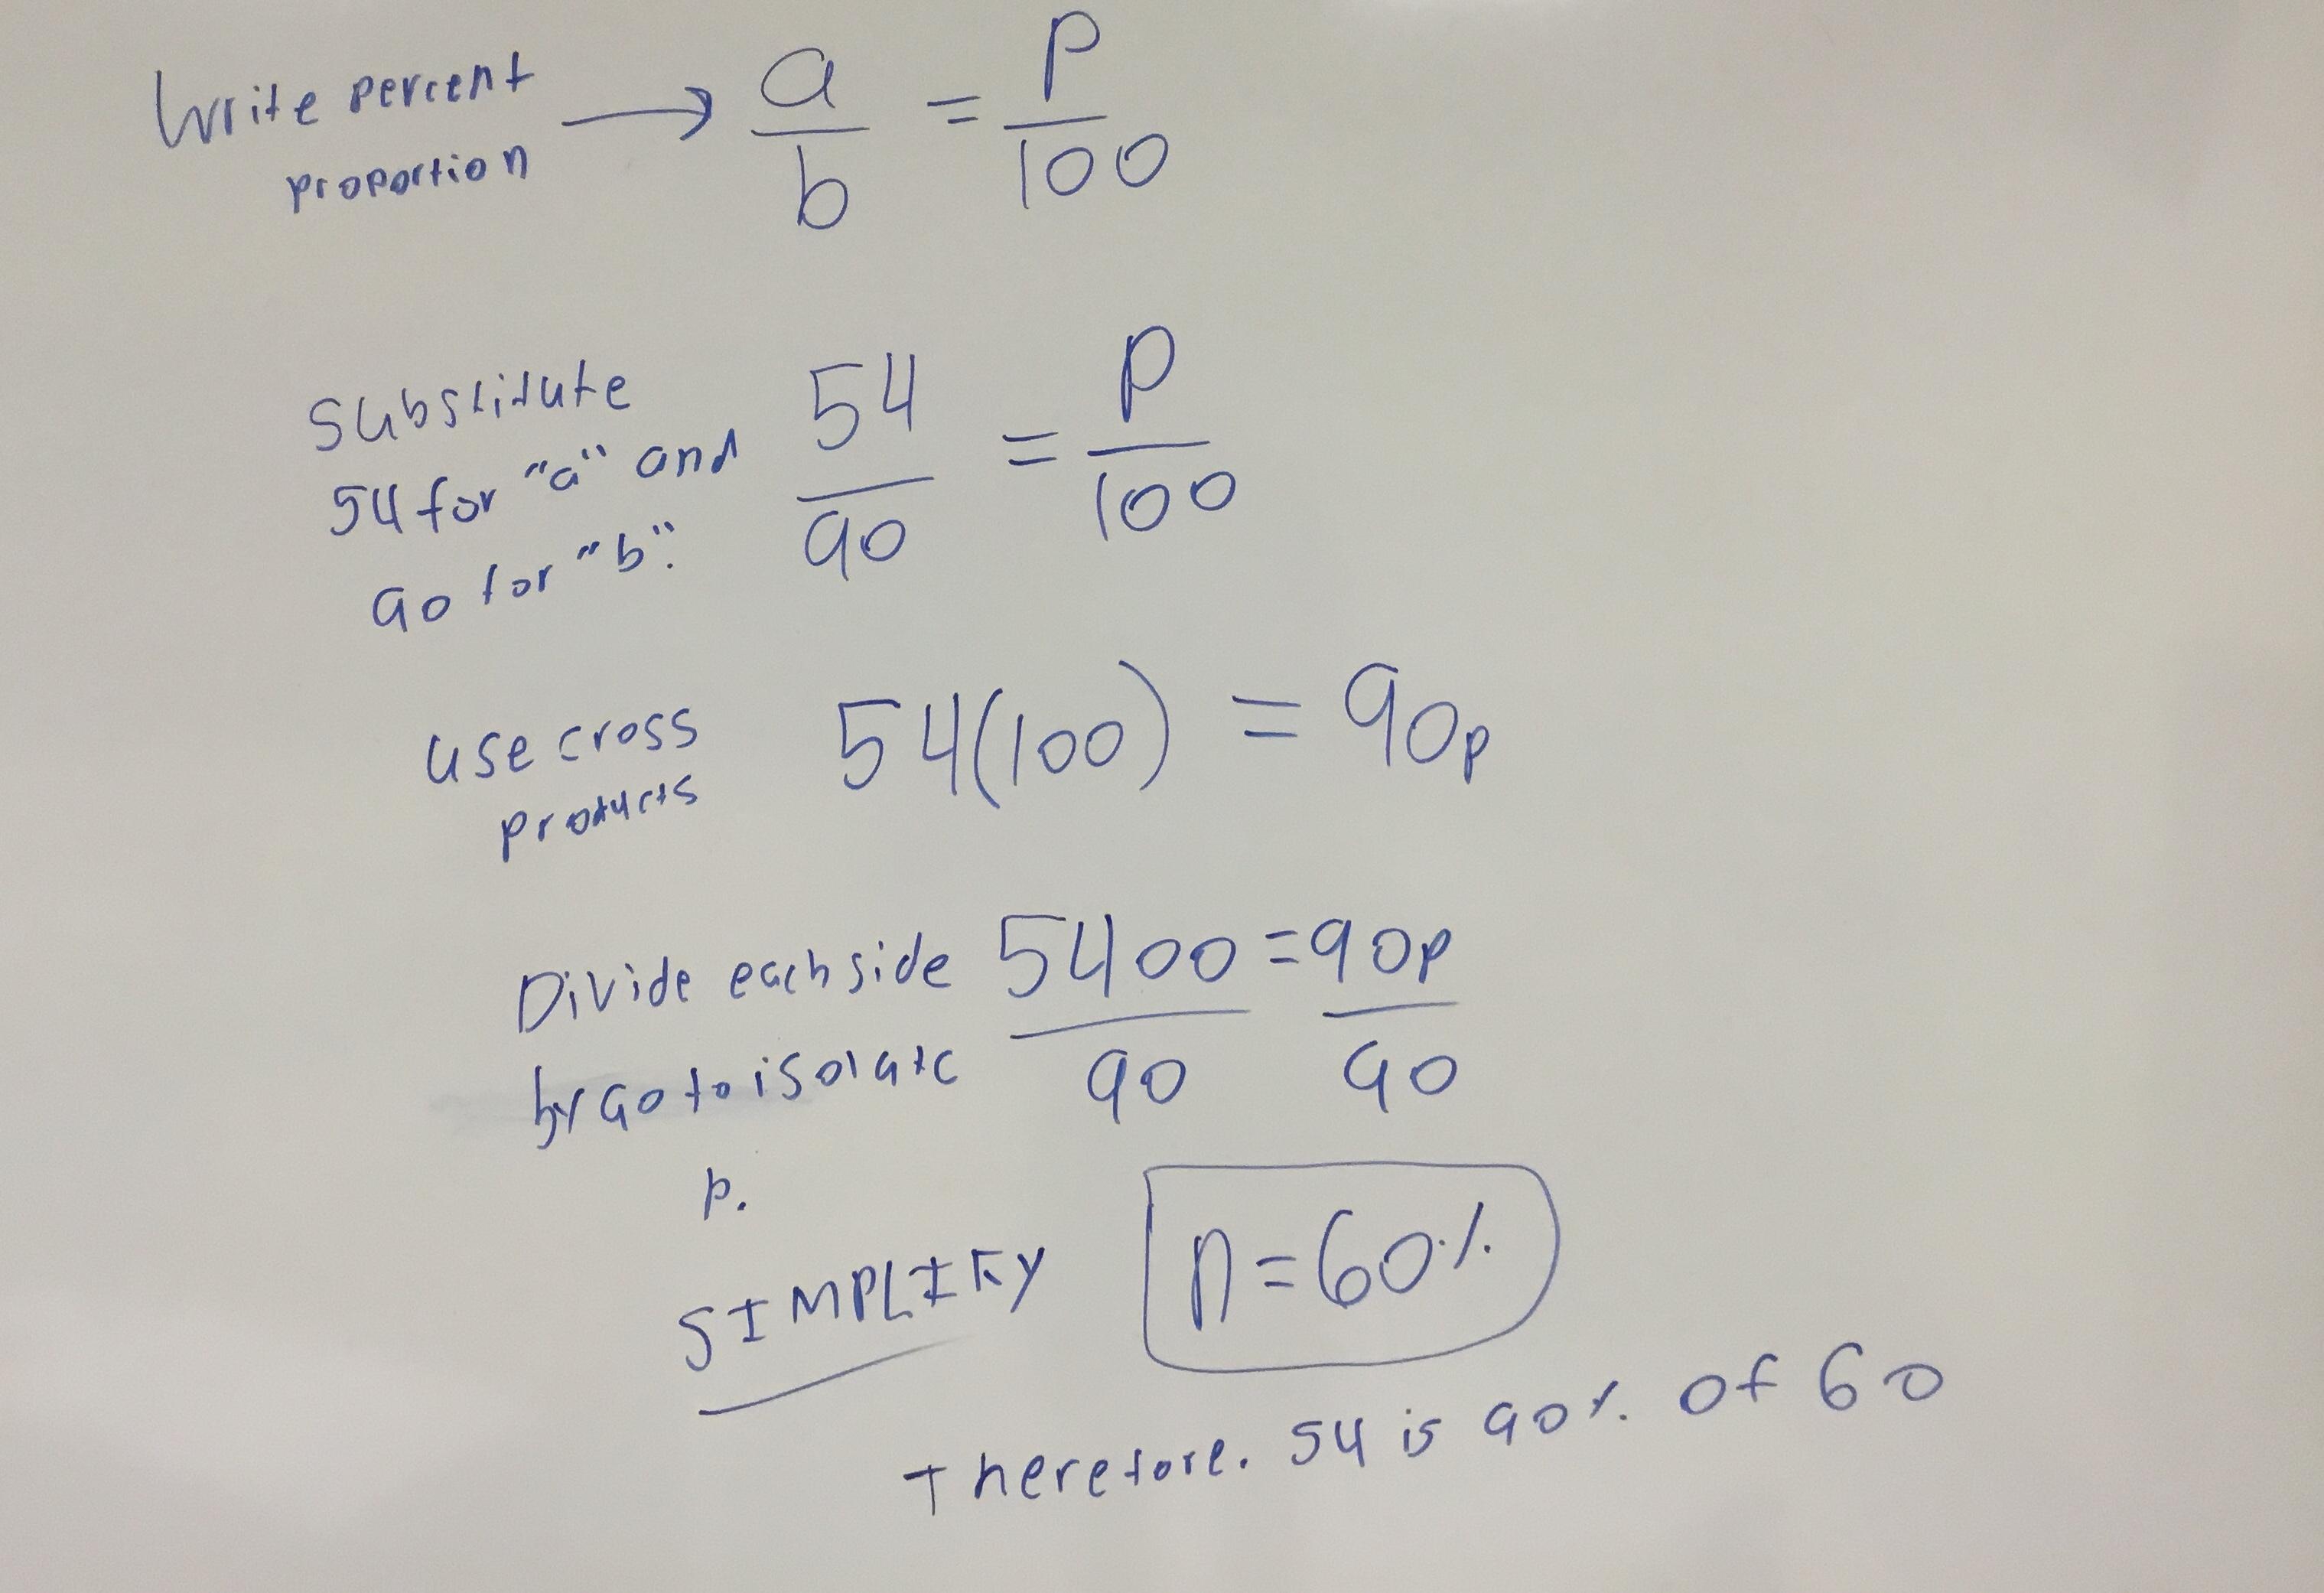 Write percent
proportion → a/b = P/100
Substitute
54 for "a" and
90 for "b".
54/90 = P/100
use cross
products
54(100) = 90p
Divide each side
by 90 to isolate
p.
5400/90 = 90p/90
SIMPLIFY
n=60%
Therefore. 54 is 90% of 60